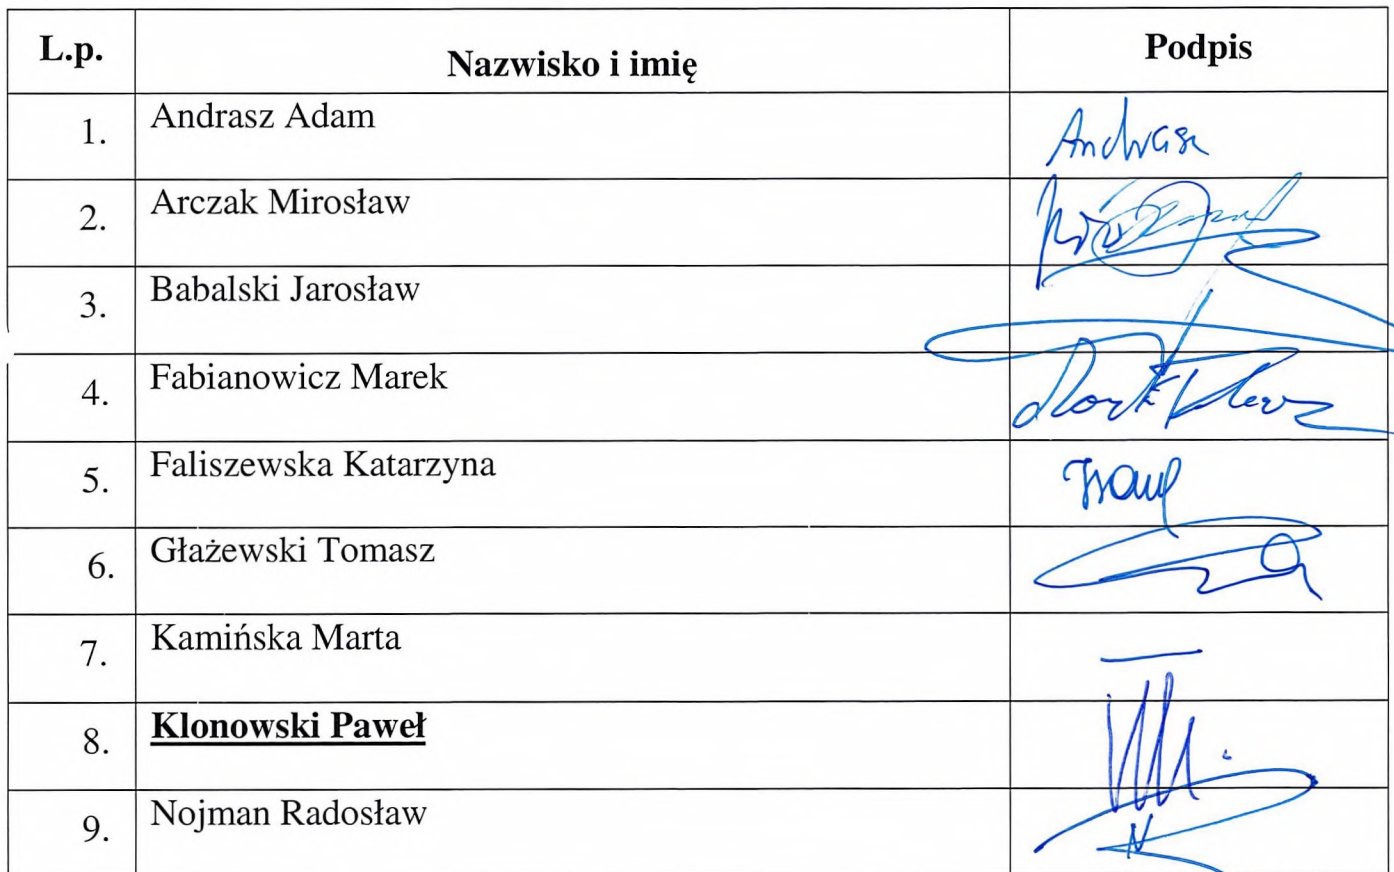 L.p. Nazwisko i imię Podpis
1. Andrasz Adam Andrasz
2. Arczak Mirosław
3. Babalski Jarosław
4. Fabianowicz Marek
5. Faliszewska Katarzyna
6. Głażewski Tomasz
7. Kamińska Marta —
8. Klonowski Paweł
9. Nojman Radosław